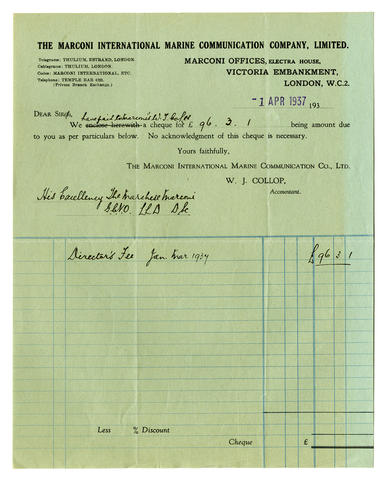 THE MARCONI INTERNATIONAL MARINE COMMUNICATION COMPANY, LIMITED.
Telegrams: THULIUM, ESTRAND, LONDON.
Cablegrams: THULIUM, LONDON.
Codes: MARCONI INTERNATIONAL, ETC.
Telephone: TEMPLE BAR
(Private Branch Exchange.)
MARCONI OFFICES, ELECTRA HOUSE,
VICTORIA EMBANKMENT,
LONDON, W.C.2.
-1 APR 1937 193
DEAR SIRS,
have paid to
We enclose herewith a cheque for £ 96. 3. 1 being amount due
to you as per particulars below. No acknowledgment of this cheque is necessary.
Yours faithfully,
THE MARCONI INTERNATIONAL MARINE COMMUNICATION CO., LTD.
W. J. COLLOP,
Accountant.
His Excellency The Marchese Marconi
G.C.V.O. LLD DSc
Director's Fee Jan. Mar 1937 £ 96 3 1
Less % Discount
Cheque £